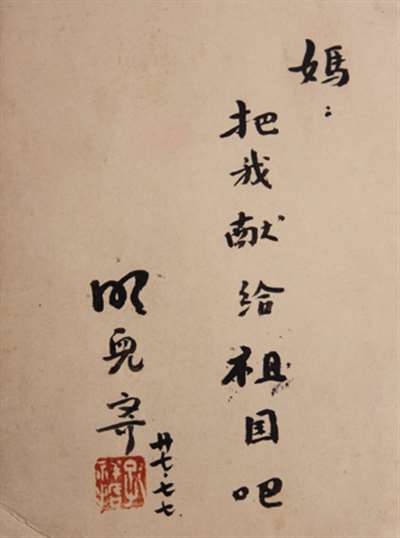 媽：
把我献给祖国吧
明兒寄
廿七·七·七